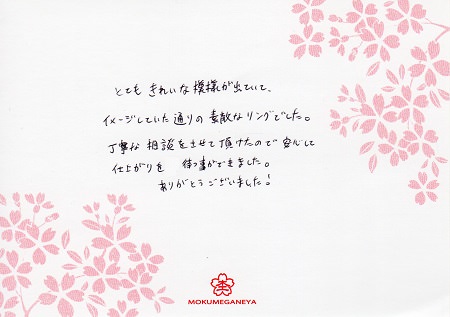 とても きれいな 模様が出ていて、
イメージしていた 通りの 素敵な リングでした。
丁寧な 相談を させて 頂けたので 安心して
仕上がりを 待つ事ができました。
ありがとうございました!
MOKUMEGANEYA